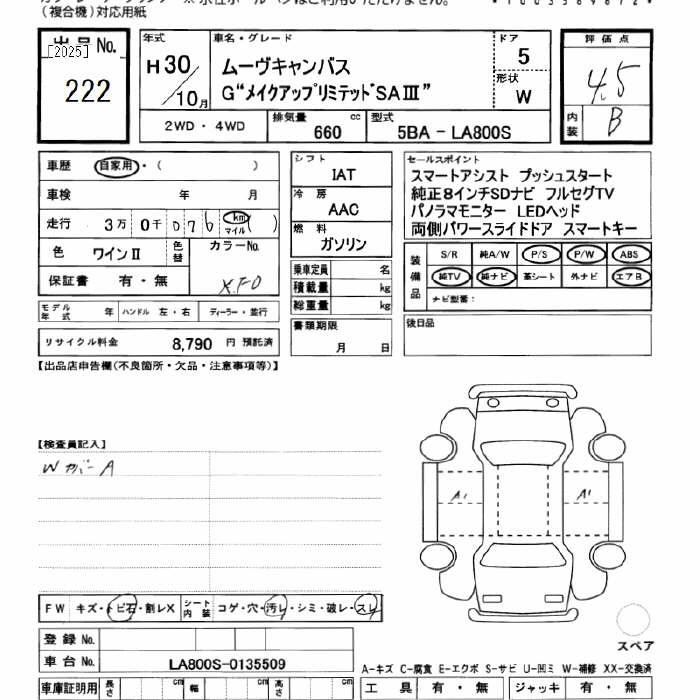 (複合機)対応用紙
出品No.
[2025]
222
年式
H30/10月
車名・グレード
ムーヴキャンバス
G“メイクアップリミテッドSAⅢ”
ドア
5
形状
W
評価点
4.5
内装
B
2WD・4WD
排気量 660 cc
型式 5BA-LA800S
車歴 自家用・( )
車検 年 月
走行 3万 0千 076 km マイル ( )
色 ワインⅡ 色替 カラーNo.
保証書 有・無
モデル年式 年 ハンドル 左・右 ディーラー・並行
リサイクル料金 8,790 円 預託済
シフト
IAT
冷房
AAC
燃料
ガソリン
乗車定員 名
積載量 kg
総重量 kg
書類期限
月 日
セールスポイント
スマートアシスト プッシュスタート
純正8インチSDナビ フルセグTV
パノラマモニター LEDヘッド
両側パワースライドドア スマートキー
装備品
S/R 純A/W P/S P/W ABS
純TV 純ナビ 革シート 外ナビ エアB
ナビ型番:
後日品
【出品店申告欄(不良箇所・欠品・注意事項等)】
【検査員記入】
WカバーA
A1 A1
FW キズ・トビ石・割レX シート内装 コゲ・穴・汚レ・シミ・破レ・スレ
登録No.
車台No. LA800S-0135509
スペア
A-キズ C-腐食 E-エクボ S-サビ U-凹ミ W-補修 XX-交換済
車庫証明用 長さ cm 幅 cm 高さ cm
工具 有・無 ジャッキ 有・無